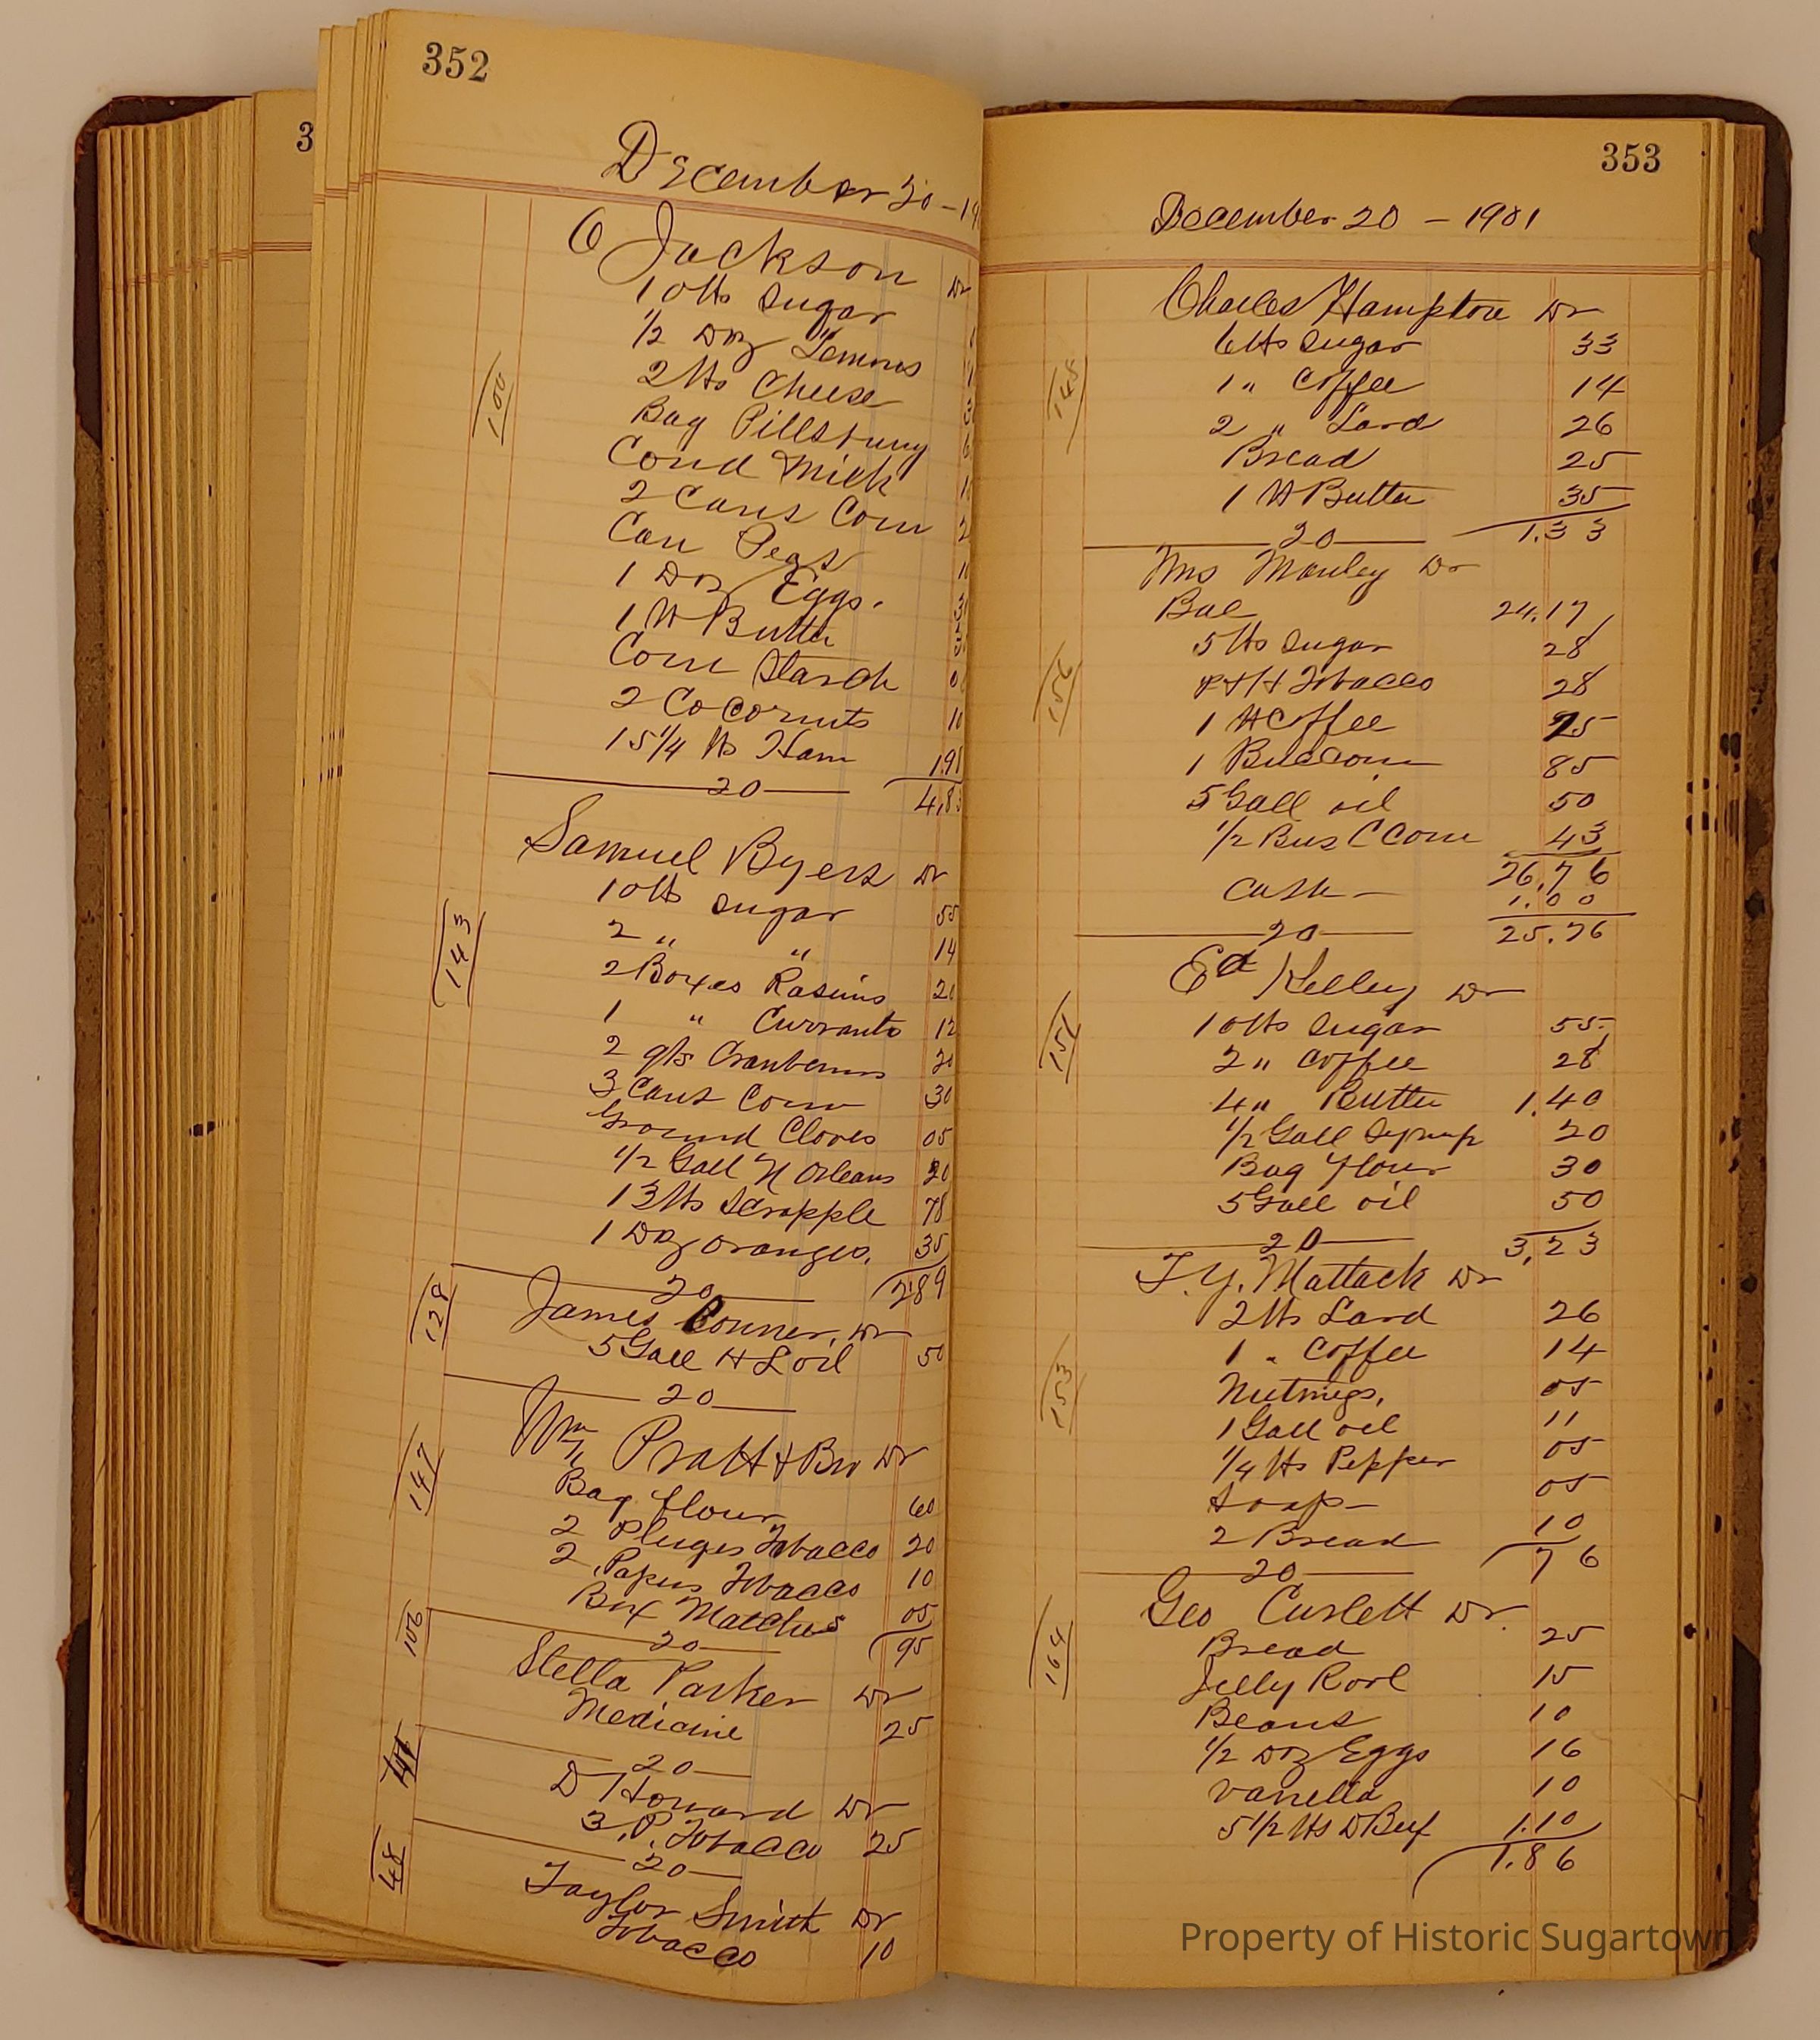 3
352
December 20 - 19
O Jackson Dr
10 lbs Sugar
1/2 Doz Lemons
2 lbs Cheese
Bag Pillsbury
Cond Milk
2 Cans Corn
Can Peas
1 Doz Eggs.
1 lb Butter
Corn Starch
2 Cocornuts 10
15 1/4 lbs Ham 1.91
20 4.8
143
Samuel Byers Dr
10 lb Sugar 55
2 " " 14
2 Boxes Rasins 20
1 " Currants 12
2 qts Cranberries 20
3 Cans Corn 30
Ground Cloves 05
1/2 Gall N Orleans 20
13 lbs Scrapple 78
1 Doz oranges. 35
20 2.89
128
James Conner. Dr
5 Gall H L oil 50
20
147
Wm Pratt & Bro Dr
Bag flour 60
2 Pluges Tobacco 20
2 Papers Tobacco 10
Box Matches 05
20 95
106
Stella Parker Dr
Medicine 25
20
D Howard Dr
3 P. Tobacco 25
20
48
Taylor Smith Dr
Tobacco 10
353
December 20 - 1901
145
Charles Hampton Dr
6 lbs Sugar 33
1 " Coffee 14
2 " Lard 26
Bread 25
1 lb Butter 35
20 1.33
156
Mrs Manley Dr
Bal 24.17
5 lbs Sugar 28
Tobacco 28
1 lb Coffee 25
1 Bus Corn 85
5 Gall oil 50
1/2 Bus C Corn 43
26.76
Cash - 1.00
20 25.76
151
Ed Kelley Dr
10 lbs Sugar 55
2 " Coffee 28
4 " Butter 1.40
1/2 Gall Syrup 20
Bag flour 30
5 Gall oil 50
20 3.23
153
T. Y. Mattack Dr
2 lbs Lard 26
1 " Coffee 14
Nutmegs. 05
1 Gall oil 11
1/4 lbs Pepper 05
Soap - 05
2 Bread 10
20 76
164
Geo Curlett Dr.
Bread 25
Jelly Rool 15
Beans 10
1/2 Doz Eggs 16
Vanella 10
5 1/2 lbs D Beef 1.10
1.86
Property of Historic Sugartown